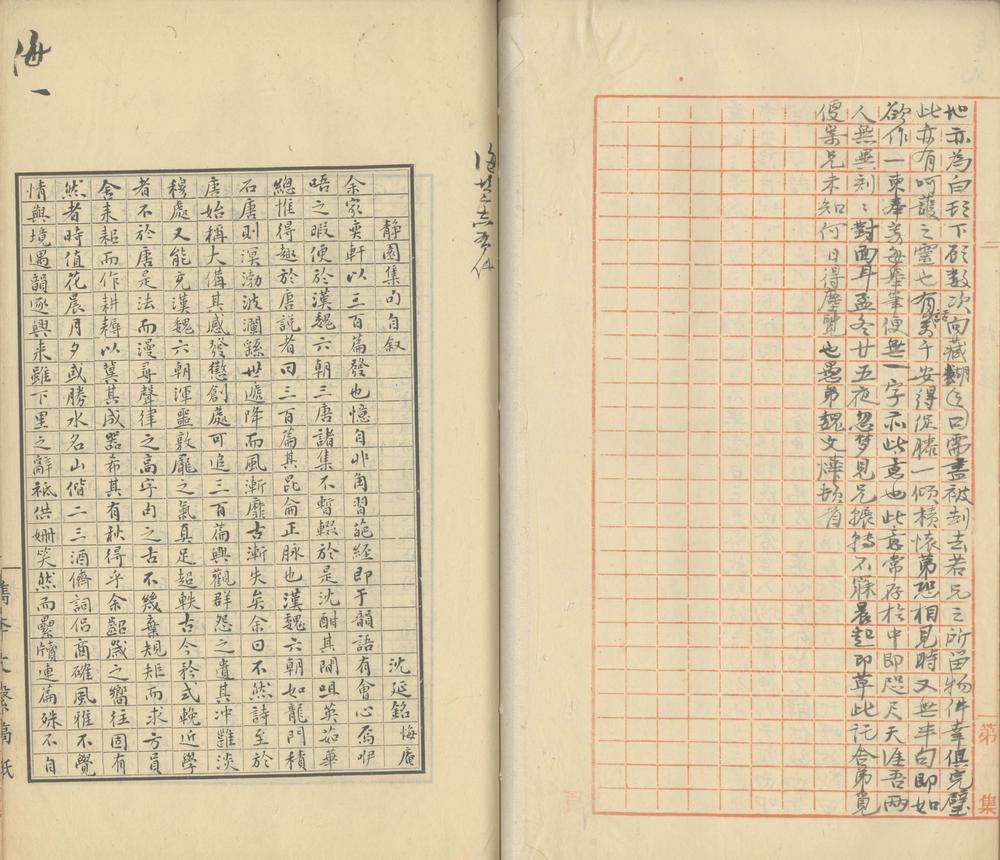 地亦為白玢下砺数次向藏餬口需盡被刦去若兄之所留物件幸俱完璧
此亦有呵護之靈也有萬千安得促膝一傾積懷苐恐相見時又無半句即如
欲作一柬奉芳每舉筆便無一字亦此意也此意常存於中即咫尺天涯吾兩
人無異刻刻對面耳孟冬廿五夜忽夢見兄振轉不寐晨起即草此託合弟覓
便寄兄未知何日得塵覽也愚弟魏文㷸頓首
第 集
悔一
靜園集句自叙
沈延銘悔庵
余家奕軒以三百篇發也憶自丱角習葩經即于韻語有會心焉呫
唔之暇便於漢魏六朝三唐諸集不暫輟於是沈酣其間咀英茹華
總惟得趣於唐說者曰三百篇其昆侖正脉也漢魏六朝如龍門積
石唐則溟渤波瀾繇世遞降而風漸靡古漸失矣余曰不然詩至於
唐始稱大備其感發懲創處可追三百篇興觀群怨之遺其冲雖淡
穆處又能克漢魏六朝渾噩敦龐之氣真足超軼古今矜式輓近學
者不於唐是法而漫尋聲律之高字句之古不幾棄規矩而求方員
舍耒耜而作耕耨以冀其成器希其有秋得乎余齠歲之嚮往固有
然者時值花晨月夕或勝水名山偕二三酒儕詞侶商確風雅不覺
情與境遇韻逐興来雖下里之辭祗供姍笑然而纍牘連篇殊不自